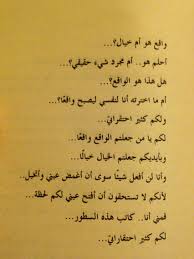 واقع هو أم خيال؟...
أحلم هو.. أم مجرد شيء حقيقي؟...
هل هذا هو الواقع؟...
أم ما اخترته أنا لنفسي ليصبح واقعًا؟...
ولكم كثير احتقاراتي..
لكم يا من جعلتم الواقع واقعًا..
وبأيديكم جعلتم الخيال خيالًا...
وأنا لن أفعل شيئًا سوى أن أغمض عيني وأتخيل..
لأنكم لا تستحقون أن أفتح عيني لكم لحظة..
فمني أنا.. كاتب هذه السطور...
لكم كثير احتقاراتي...